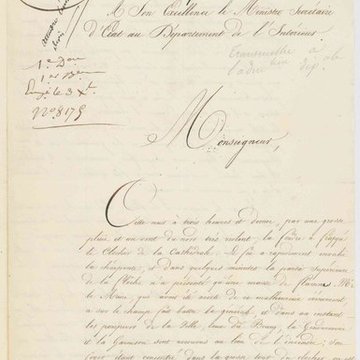 A Son Excellence le Ministre Secrétaire
d'Etat au Département de l'Intérieur
1e Don
1er Beau
Enrgé le 3 Xbre
No 8175
Monseigneur,
Cette nuit à trois heures et demie, par une grosse
pluie et un vent du nord très violent, la foudre a frappé
le clocher de la Cathédrale. Le feu a rapidement envahi
la charpente, et dans quelques minutes la partie supérieure
de la flèche n'a présenté qu'une masse de flammes. Mr
le Maire, que j'avais fait avertir de ce malheureux événement
a sur le champ fait battre la générale, et dans un instant
les pompiers de la Ville, ceux du Bourg, la Gendarmerie
et la Garnison sont accourus au lieu de l'incendie; son
foyer étant concentré dans la partie du clocher